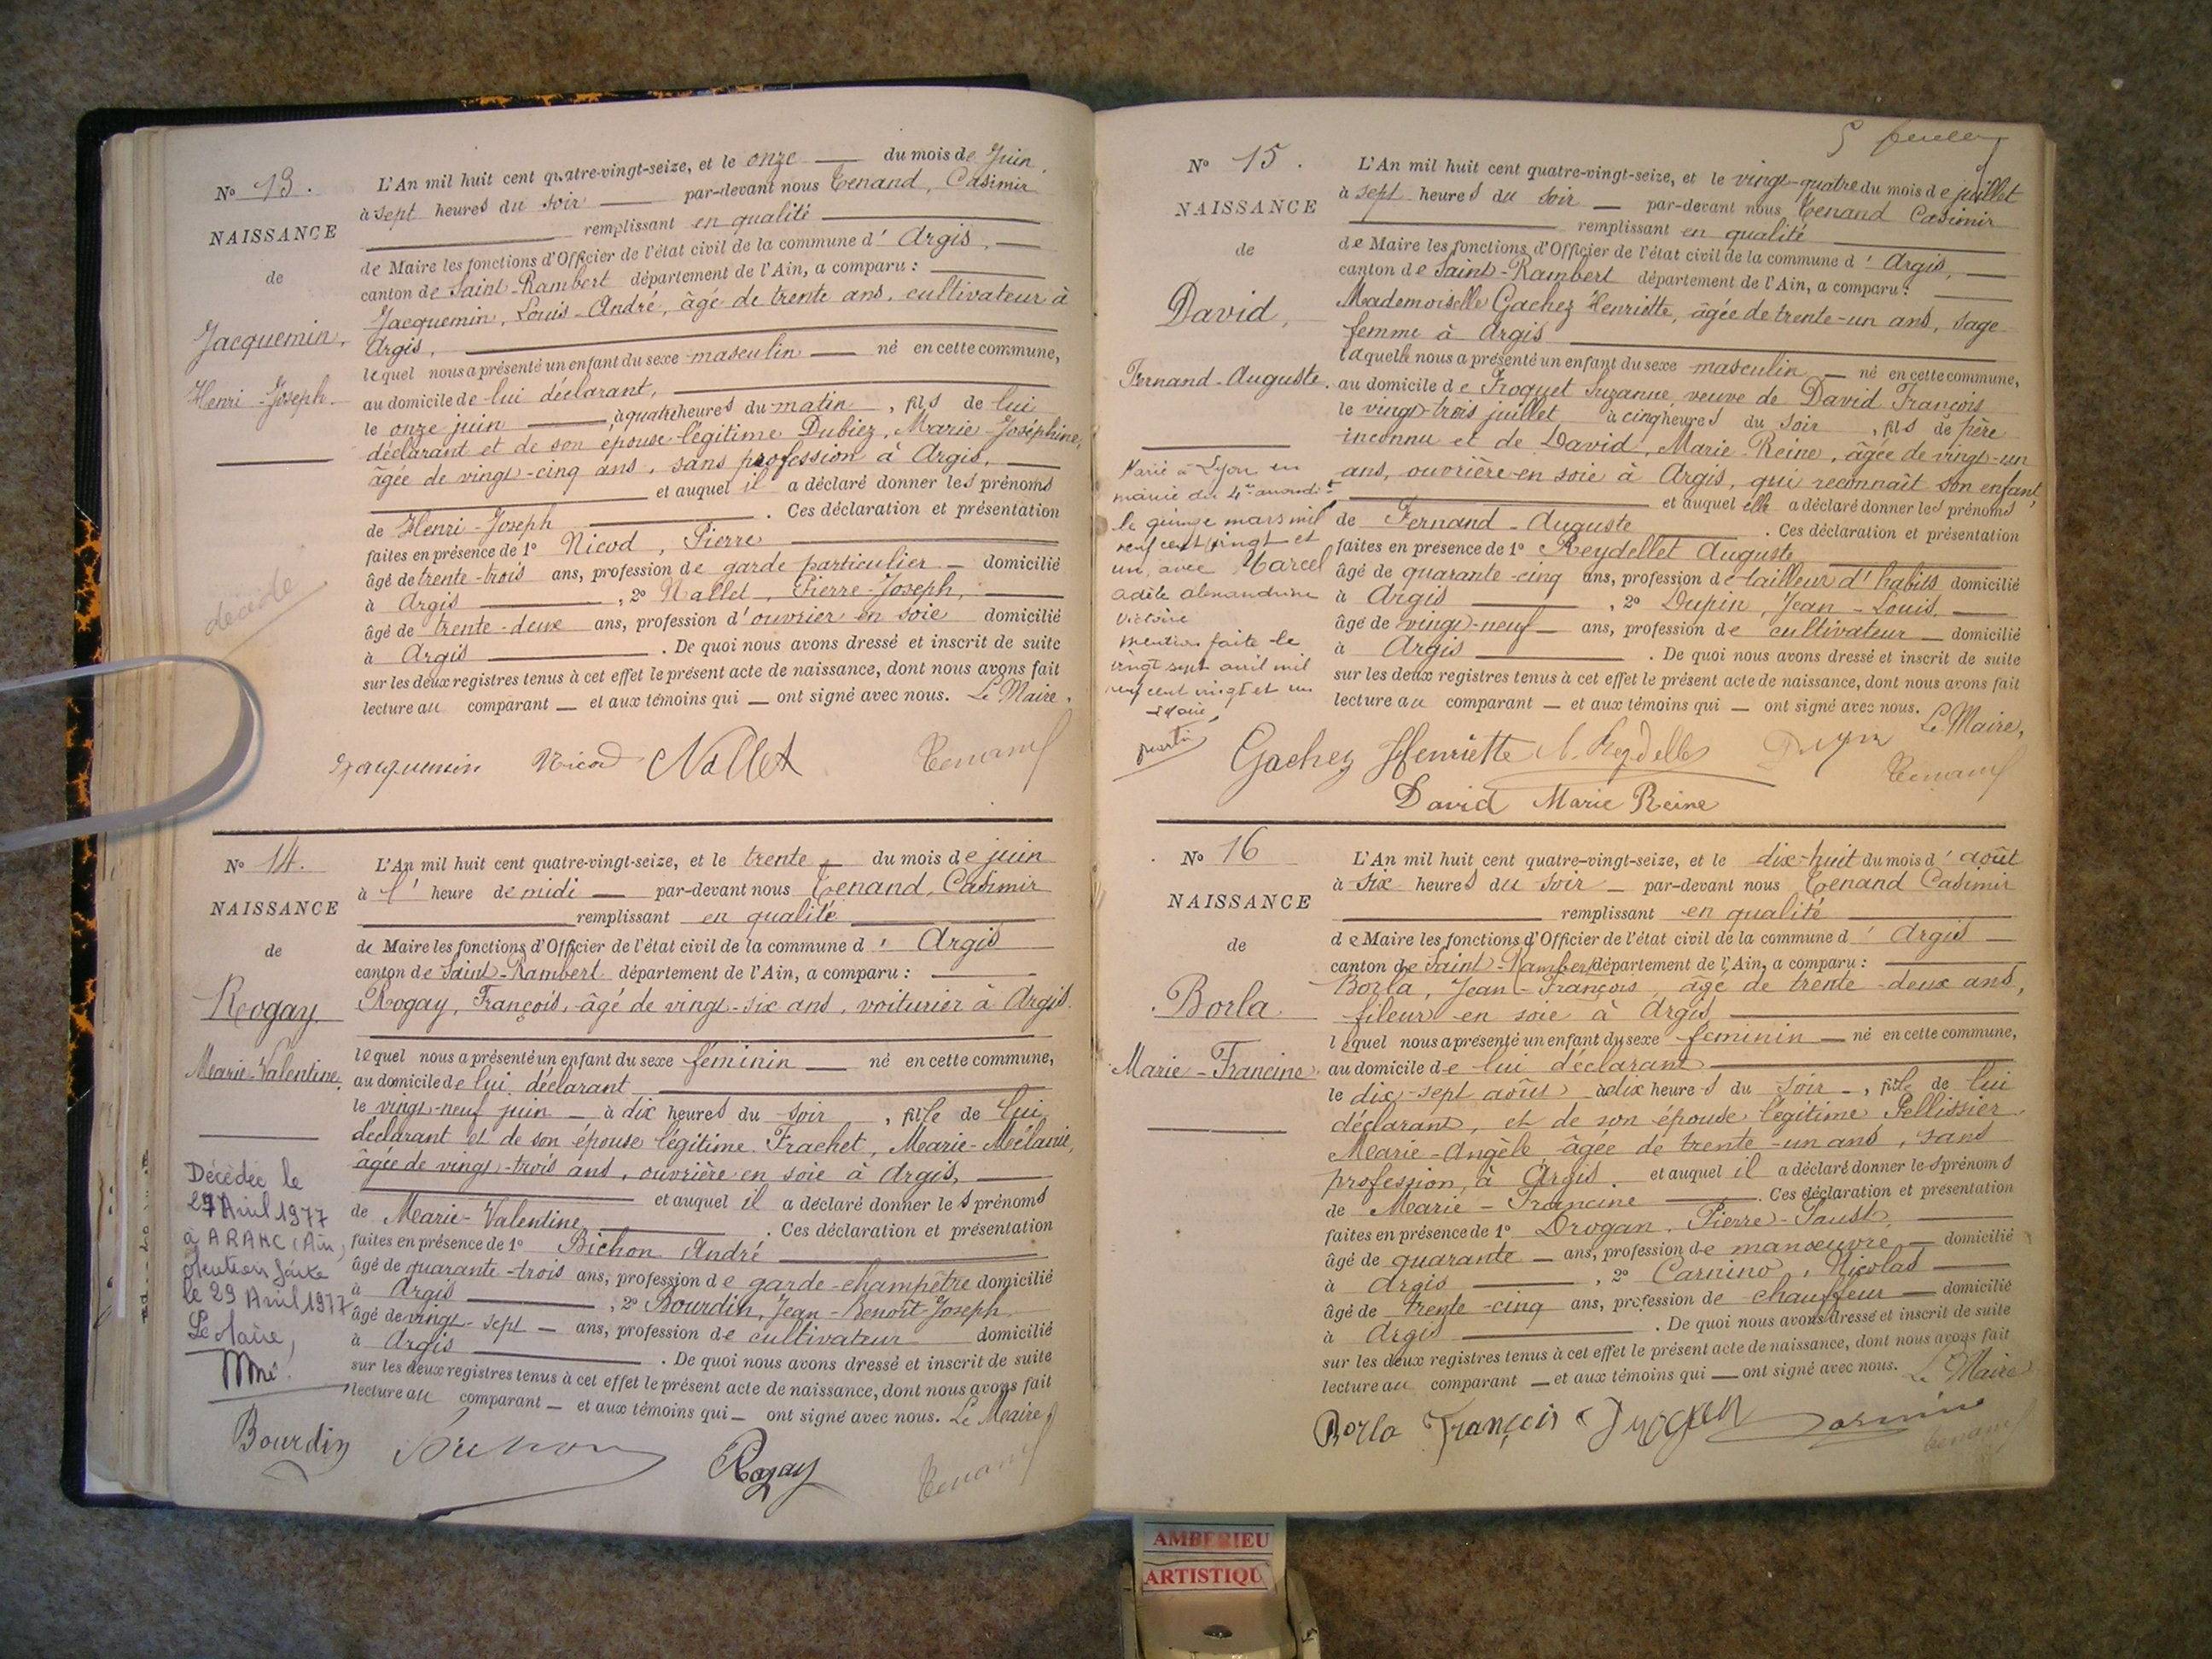 Nº 13.
NAISSANCE
de
Jacquemin,
Henri-Joseph.
décédé
L'An mil huit cent quatre-vingt-seize, et le onze du mois de Juin
à sept heures du soir par-devant nous Tenand, Casimir
remplissant en qualité
de Maire les fonctions d'Officier de l'état civil de la commune d'Argis,
canton de Saint-Rambert département de l'Ain, a comparu :
Jacquemin, Louis-André, âgé de trente ans, cultivateur à
Argis,
lequel nous a présenté un enfant du sexe masculin né en cette commune,
au domicile de lui déclarant,
le onze juin, à quatre heures du matin, fils de lui
déclarant et de son épouse légitime Dubiez, Marie-Joséphine,
âgée de vingt-cinq ans, sans profession à Argis,
et auquel il a déclaré donner les prénoms
de Henri-Joseph. Ces déclaration et présentation
faites en présence de 1º Nicod, Pierre
âgé de trente-trois ans, profession de garde particulier domicilié
à Argis, 2º Nallet, Pierre-Joseph,
âgé de trente-deux ans, profession d'ouvrier en soie domicilié
à Argis. De quoi nous avons dressé et inscrit de suite
sur les deux registres tenus à cet effet le présent acte de naissance, dont nous avons fait
lecture au comparant et aux témoins qui ont signé avec nous. Le Maire,
Jacquemin Nicod Nallet Tenand
Nº 14.
NAISSANCE
de
Rogay
Marie-Valentine.
Décédée le
27 Avril 1977
à ARANC (Ain)
Mention faite
le 29 Avril 1977
Le Maire,
L'An mil huit cent quatre-vingt-seize, et le trente du mois de juin
à l'heure de midi par-devant nous Tenand, Casimir
remplissant en qualité
de Maire les fonctions d'Officier de l'état civil de la commune d'Argis
canton de Saint-Rambert département de l'Ain, a comparu :
Rogay, François, âgé de vingt-six ans, voiturier à Argis.
lequel nous a présenté un enfant du sexe féminin né en cette commune,
au domicile de lui déclarant
le vingt-neuf juin à dix heures du soir, fille de lui
déclarant et de son épouse légitime Frachet, Marie-Mélanie,
âgée de vingt-trois ans, ouvrière en soie à Argis,
et auquel il a déclaré donner les prénoms
de Marie-Valentine. Ces déclaration et présentation
faites en présence de 1º Bichon André
âgé de quarante-trois ans, profession de garde-champêtre domicilié
à Argis, 2º Bourdin, Jean-Benoît-Joseph
âgé de vingt-sept ans, profession de cultivateur domicilié
à Argis. De quoi nous avons dressé et inscrit de suite
sur les deux registres tenus à cet effet le présent acte de naissance, dont nous avons fait
lecture au comparant et aux témoins qui ont signé avec nous. Le Maire,
Bourdin Bichon Rogay Tenand
5 feuille
Nº 15.
NAISSANCE
de
David,
Fernand-Auguste.
Marié à Lyon en
mairie du 4e arrondit
le quinze mars mil
neuf cent vingt et
un avec Marcel
Adèle Alexandrine
Victoire
Mention faite le
vingt sept avril mil
neuf cent vingt et un
L'An mil huit cent quatre-vingt-seize, et le vingt-quatre du mois de juillet
à sept heures du soir par-devant nous Tenand Casimir
remplissant en qualité
de Maire les fonctions d'Officier de l'état civil de la commune d'Argis,
canton de Saint-Rambert département de l'Ain, a comparu :
Mademoiselle Gachez Henriette, âgée de trente-un ans, sage
femme à Argis
laquelle nous a présenté un enfant du sexe masculin né en cette commune,
au domicile de Froquet Suzanne, veuve de David François
le vingt-trois juillet à cinq heures du soir, fils de père
inconnu et de David, Marie-Reine, âgée de vingt-un
ans, ouvrière en soie à Argis, qui reconnaît son enfant,
et auquel elle a déclaré donner les prénoms
de Fernand-Auguste. Ces déclaration et présentation
faites en présence de 1º Reydellet Auguste
âgé de quarante-cinq ans, profession de tailleur d'habits domicilié
à Argis, 2º Dupin, Jean-Louis,
âgé de vingt-neuf ans, profession de cultivateur domicilié
à Argis. De quoi nous avons dressé et inscrit de suite
sur les deux registres tenus à cet effet le présent acte de naissance, dont nous avons fait
lecture au comparant et aux témoins qui ont signé avec nous. Le Maire,
Gachez Henriette A. Reydellet Dupin Tenand
David Marie Reine
Nº 16
NAISSANCE
de
Borla
Marie-Francine
L'An mil huit cent quatre-vingt-seize, et le dix-huit du mois d'août
à six heures du soir par-devant nous Tenand Casimir
remplissant en qualité
de Maire les fonctions d'Officier de l'état civil de la commune d'Argis
canton de Saint-Rambert département de l'Ain, a comparu :
Borla, Jean-François, âgé de trente-deux ans,
fileur en soie à Argis
lequel nous a présenté un enfant du sexe feminin né en cette commune,
au domicile de lui déclarant
le dix-sept août à dix heures du soir, fille de lui
déclarant, et de son épouse légitime Pellissier
Marie-Angèle, âgée de trente-un ans, sans
profession, à Argis. et auquel il a déclaré donner les prénoms
de Marie-Francine. Ces déclaration et présentation
faites en présence de 1º Drogan, Pierre-Faust,
âgé de quarante ans, profession de manœuvre domicilié
à Argis, 2º Carnino, Nicolas
âgé de trente-cinq ans, profession de chauffeur domicilié
à Argis. De quoi nous avons dressé et inscrit de suite
sur les deux registres tenus à cet effet le présent acte de naissance, dont nous avons fait
lecture au comparant et aux témoins qui ont signé avec nous. Le Maire
Borla François Drogan Carnino Tenand
AMBERIEU
ARTISTIQU